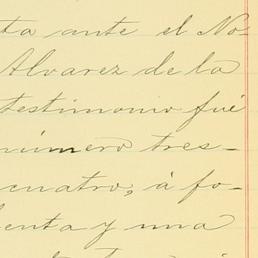 ta ante el No-
Alvarez de la
testimonio fué
número tres-
cuatro, á fo-
enta y una